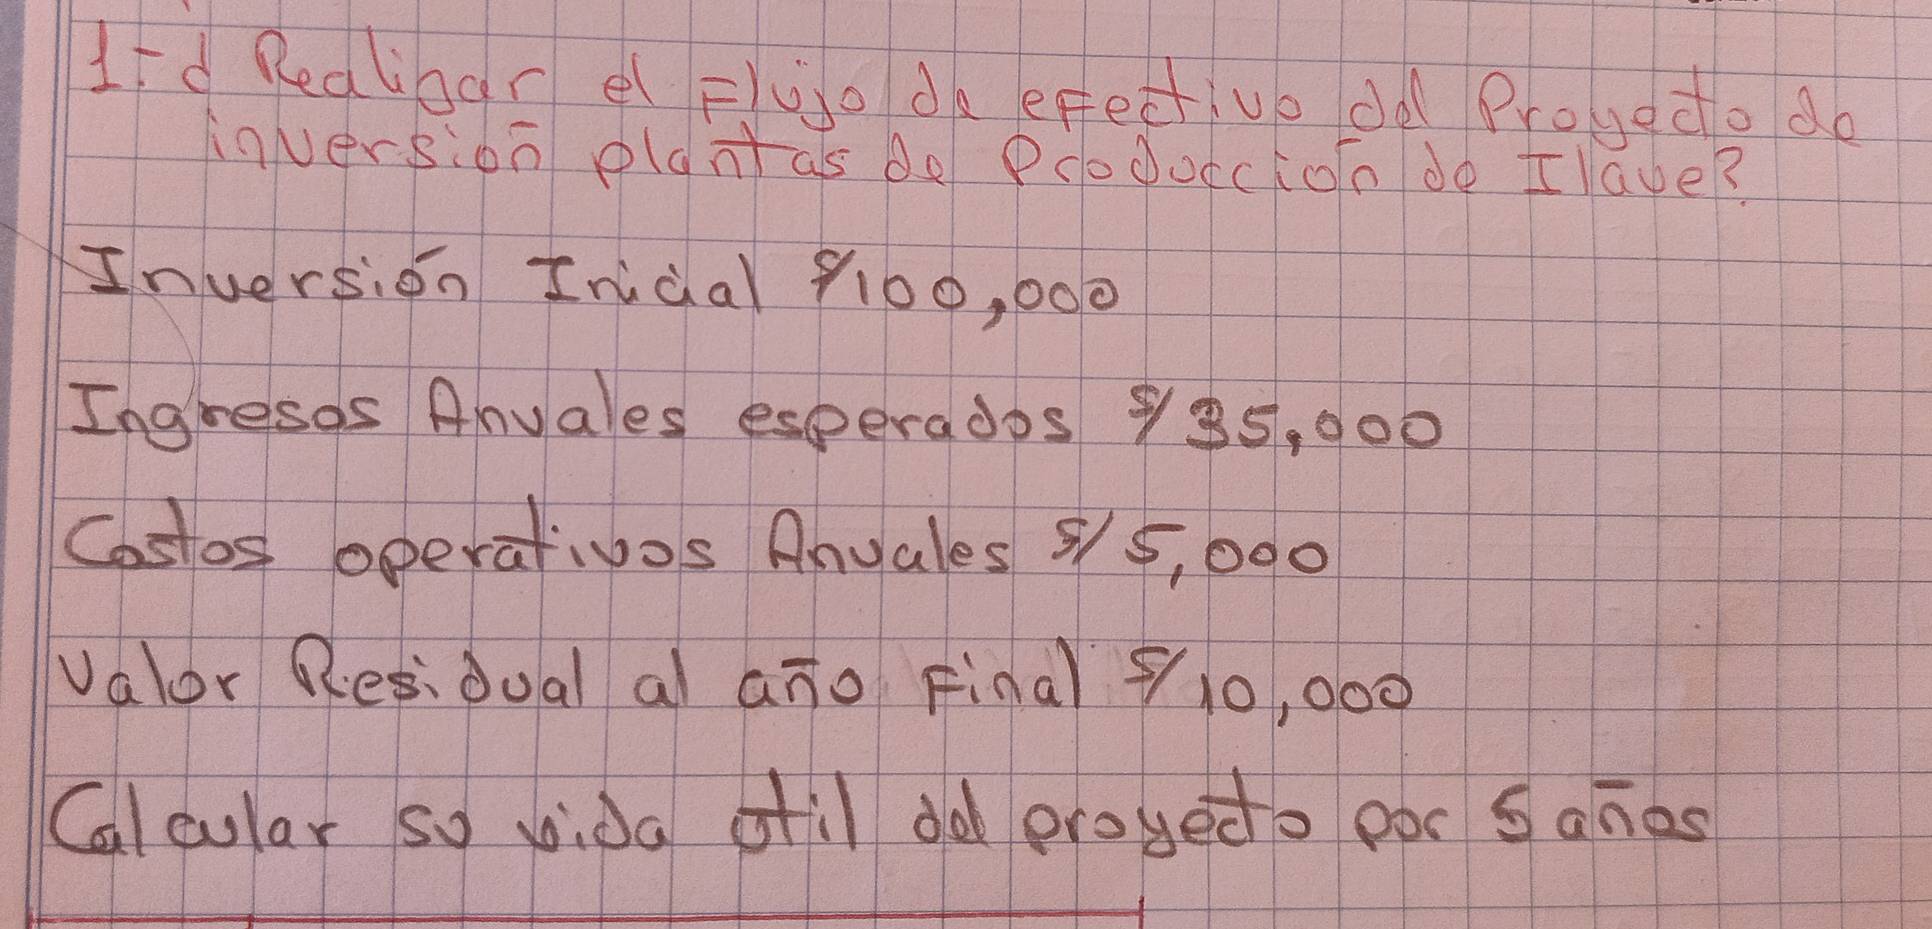 1.- d Realigar el Flujo de efectivo del Proyecto de
inversión plantas de Producción de Ilave?
Inversión Inicial S/100,000
Ingresos Anuales esperados S/35,000
Costos operativos Anuales S/ 5,000
Valor Residual al año Final S/10,000
Calcular su vida útil del proyecto por 5 años